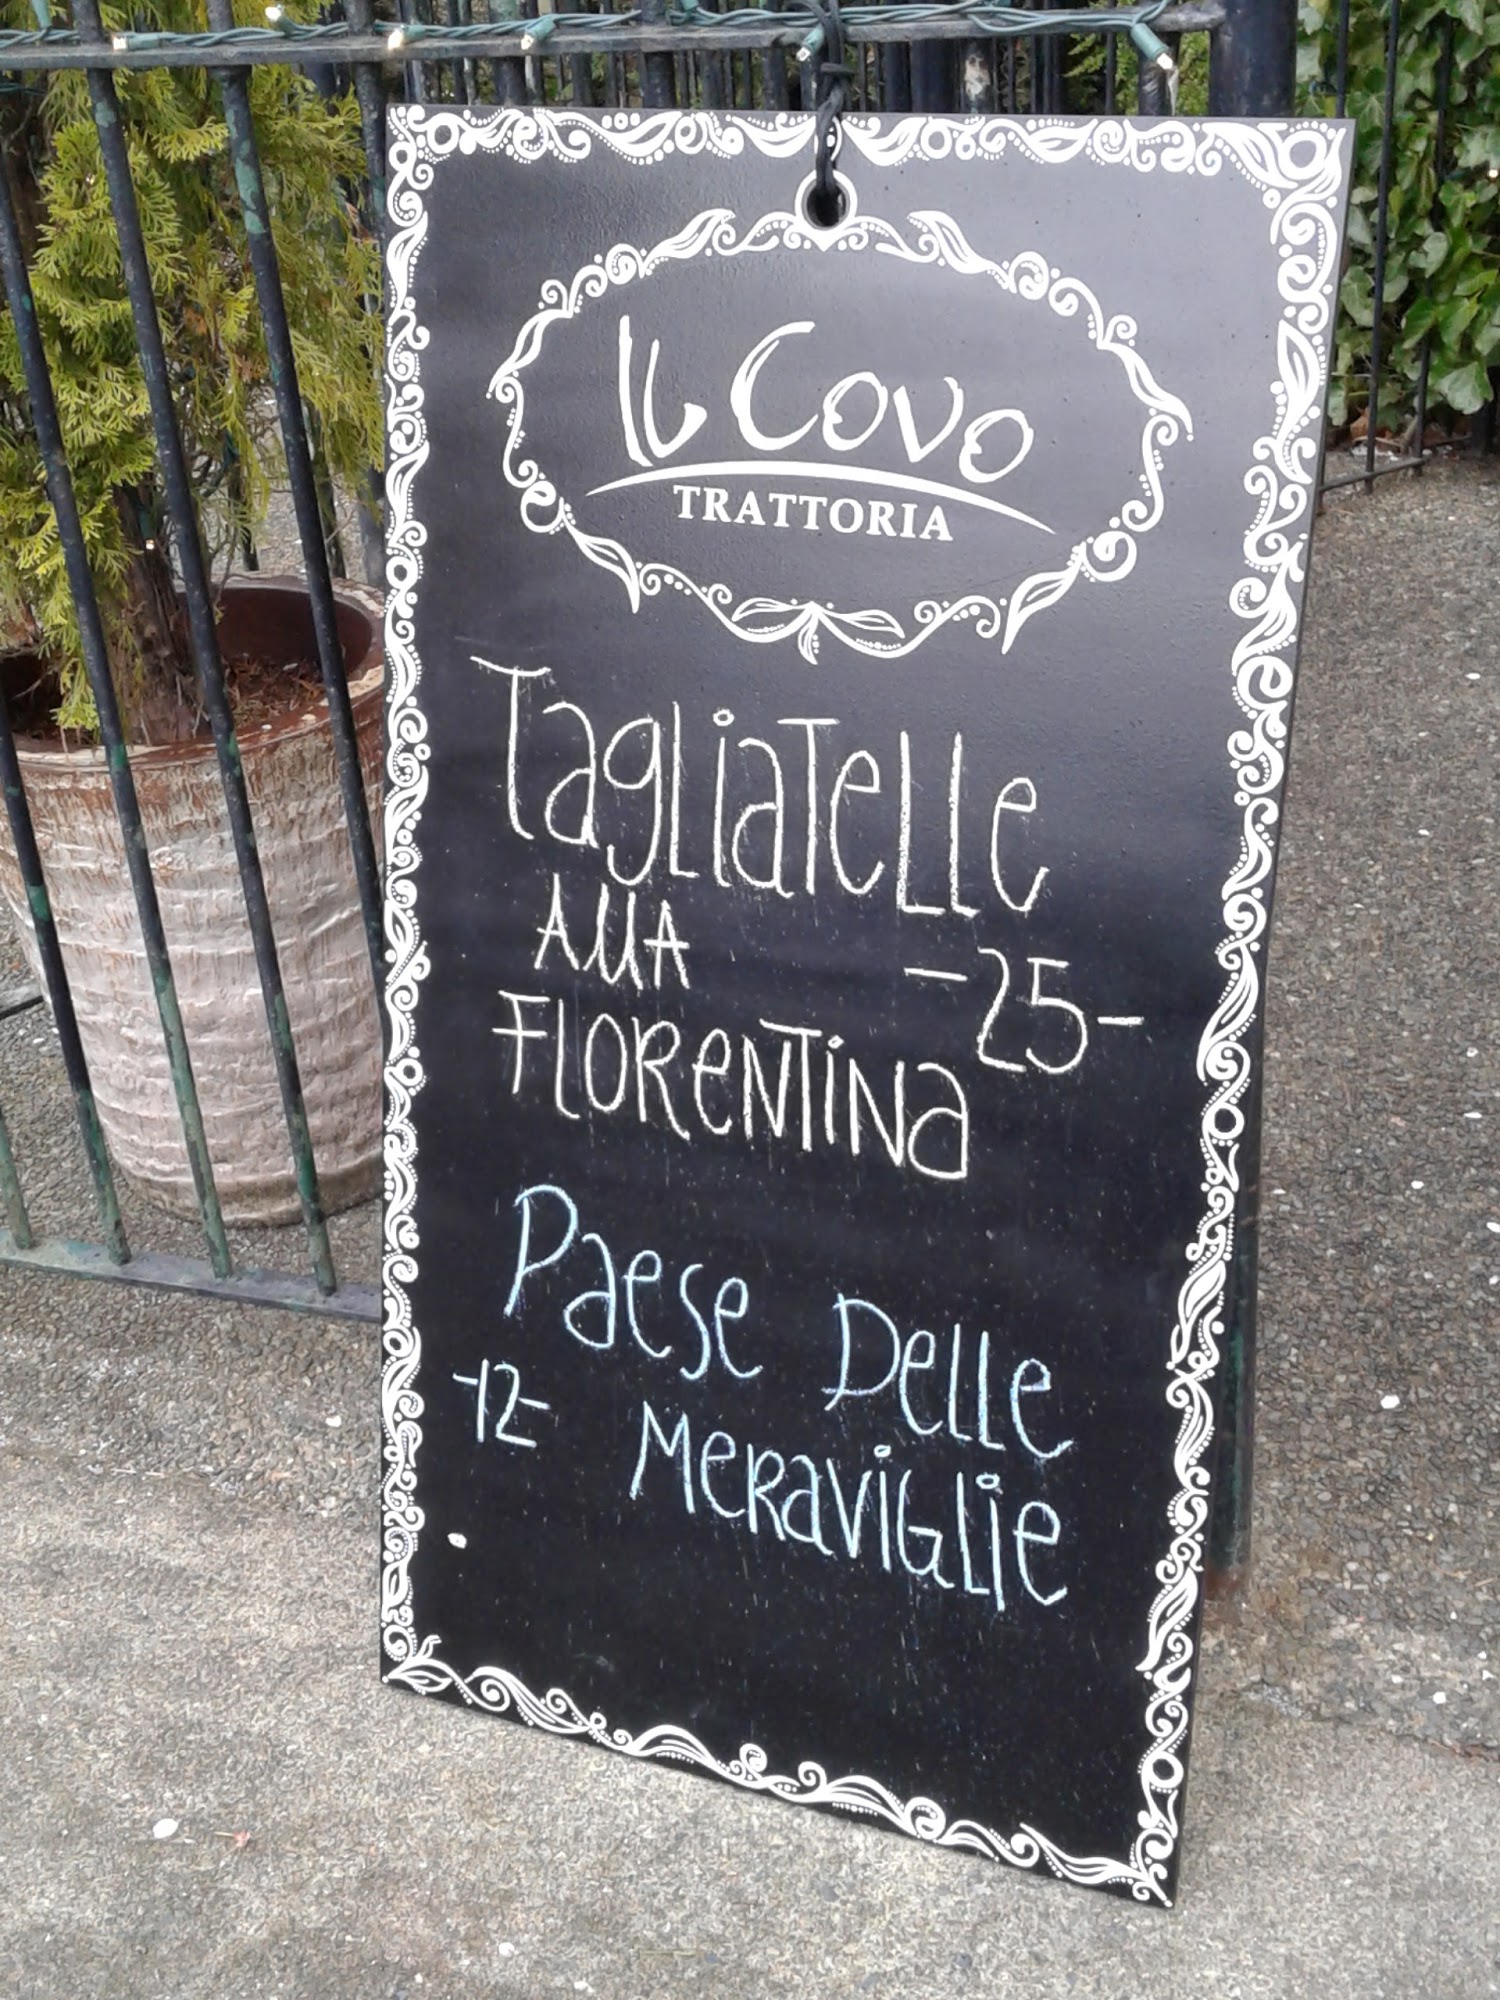 IL Covo
TRATTORIA
Tagliatelle
Alla
-25-
Florentina
Paese Delle
-12- Meraviglie